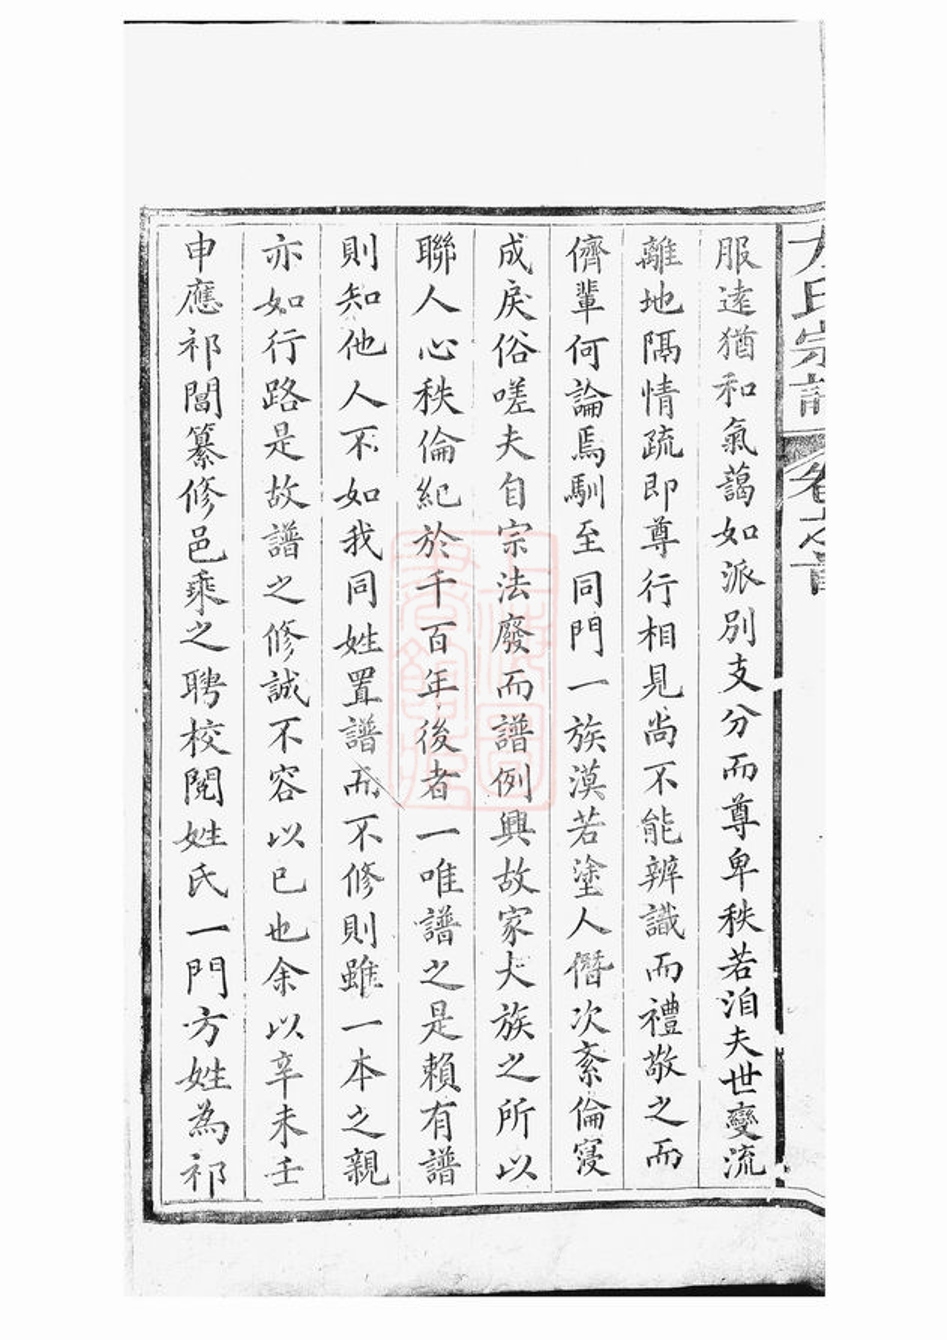 方氏宗譜 卷之首
服逺猶和氣藹如派別支分而尊卑秩若洎夫世變流
離地隔情疏即尊行相見尚不能辨識而禮敬之而
儕輩何論焉馴至同門一族漠若塗人僭次紊倫寖
成戾俗嗟夫自宗法廢而譜例興故家大族之所以
聯人心秩倫紀於千百年後者一唯譜之是賴有譜
則知他人不如我同姓置譜而不修則雖一本之親
亦如行路是故譜之修誠不容以已也余以辛未壬
申應祁閶纂修邑乘之聘校閱姓氏一門方姓為祁